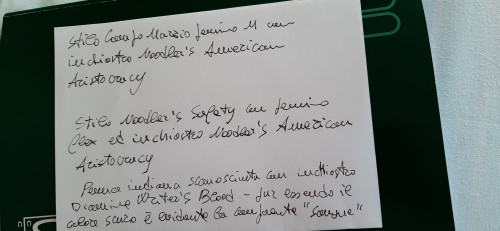 Stilo Campo Marzio pennino M con
inchiostro Noodler's American
Aristocracy
Stilo Noodler's Safety con pennino
flex et inchiostro Noodler's American
Aristocracy
Penna indiana sconosciuta con inchiostro
Diamine Writer's Blood - pur essendo il
colore scuro è evidente la componente "sangue"